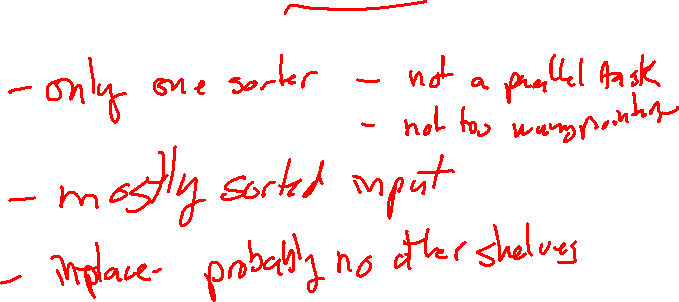 - only one sorter - not a parallel task
- not too many pointers
- mostly sorted input
- inplace - probably no other shelves